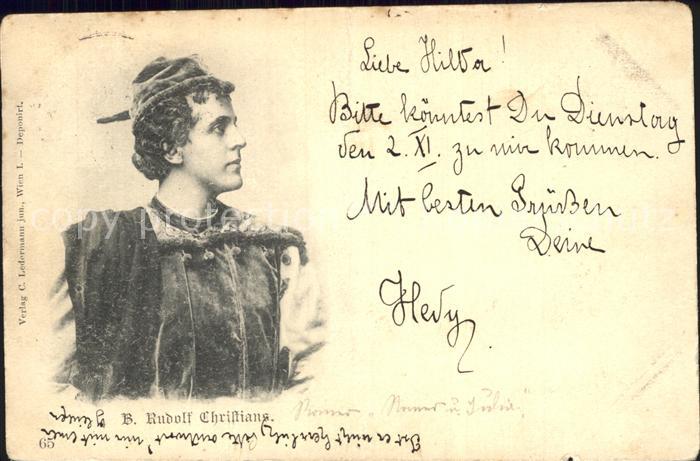 Liebe Hilda!
Bitte könntest Du Dienstag
den 2. XI. zu mir kommen.
Mit besten Grüßen
Deine
Hedy
Verlag C. Ledermann jun., Wien I. — Deponirt.
B. Rudolf Christians.
Romeo "Romeo u. Julia"
bitte mir mit einer
65
copyright